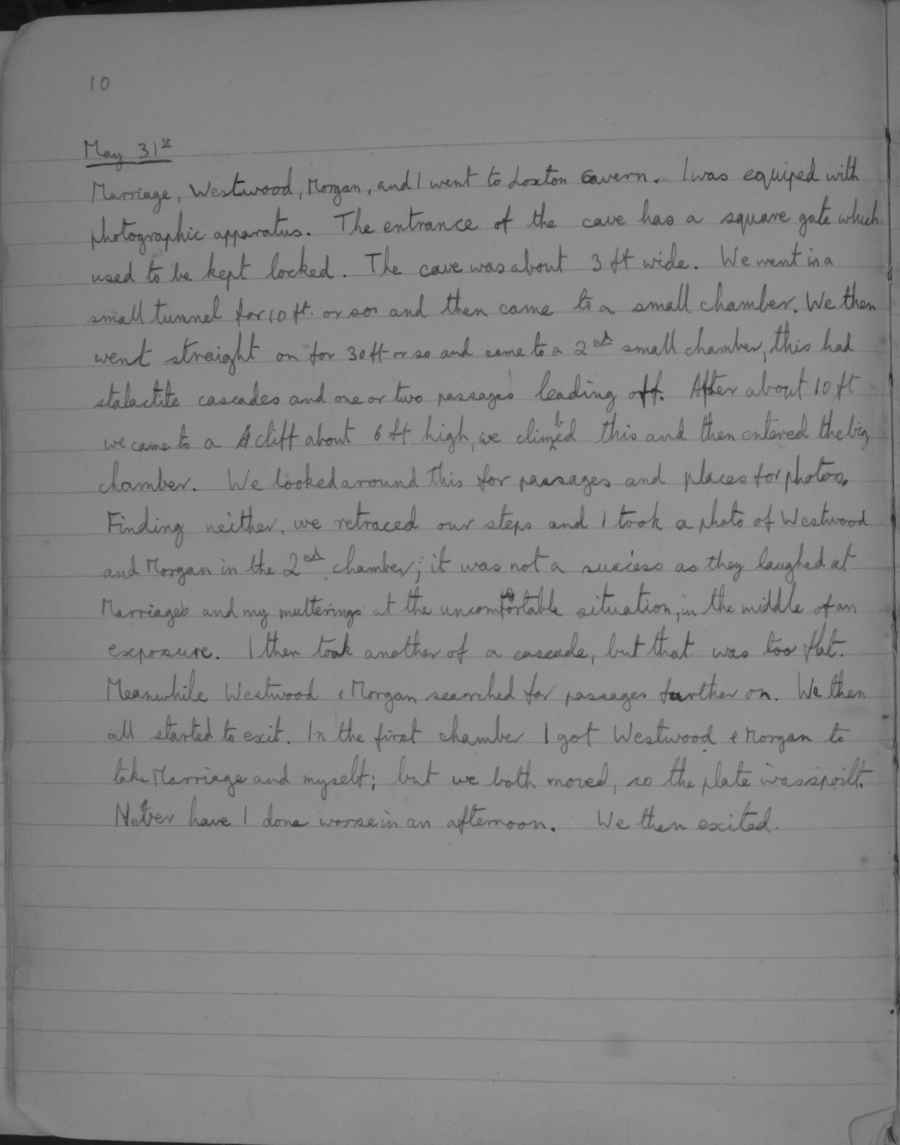 10
May 31st
Marriage, Westwood, Morgan, and I went to Loxton Cavern. I was equiped with
photographic apparatus. The entrance of the cave has a square gate which
used to be kept locked. The cave was about 3 ft wide. We went in a
small tunnel for 10 ft. or so and then came to a small chamber. We then
went straight on for 30 ft or so and came to a 2nd small chamber, this had
stalactite cascades and one or two passages leading off. After about 10 ft
we came to a cliff about 6 ft high, we climbed this and then entered the big
chamber. We looked around this for passages and places for photos,
Finding neither, we retraced our steps and I took a photo of Westwood
and Morgan in the 2nd chamber; it was not a success as they laughed at
Marriages and my mutterings at the uncomfortable situation, in the middle of an
exposure. I then took another of a cascade, but that was too flat.
Meanwhile Westwood & Morgan searched for passages further on. We then
all started to exit. In the first chamber I got Westwood & Morgan to
take Marriage and myself; but we both moved, so the plate was spoilt.
Never have I done worse in an afternoon. We then exited.